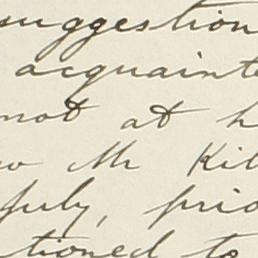 suggestion
acquaint
not at h
Mr Kil
July, prio
tioned to